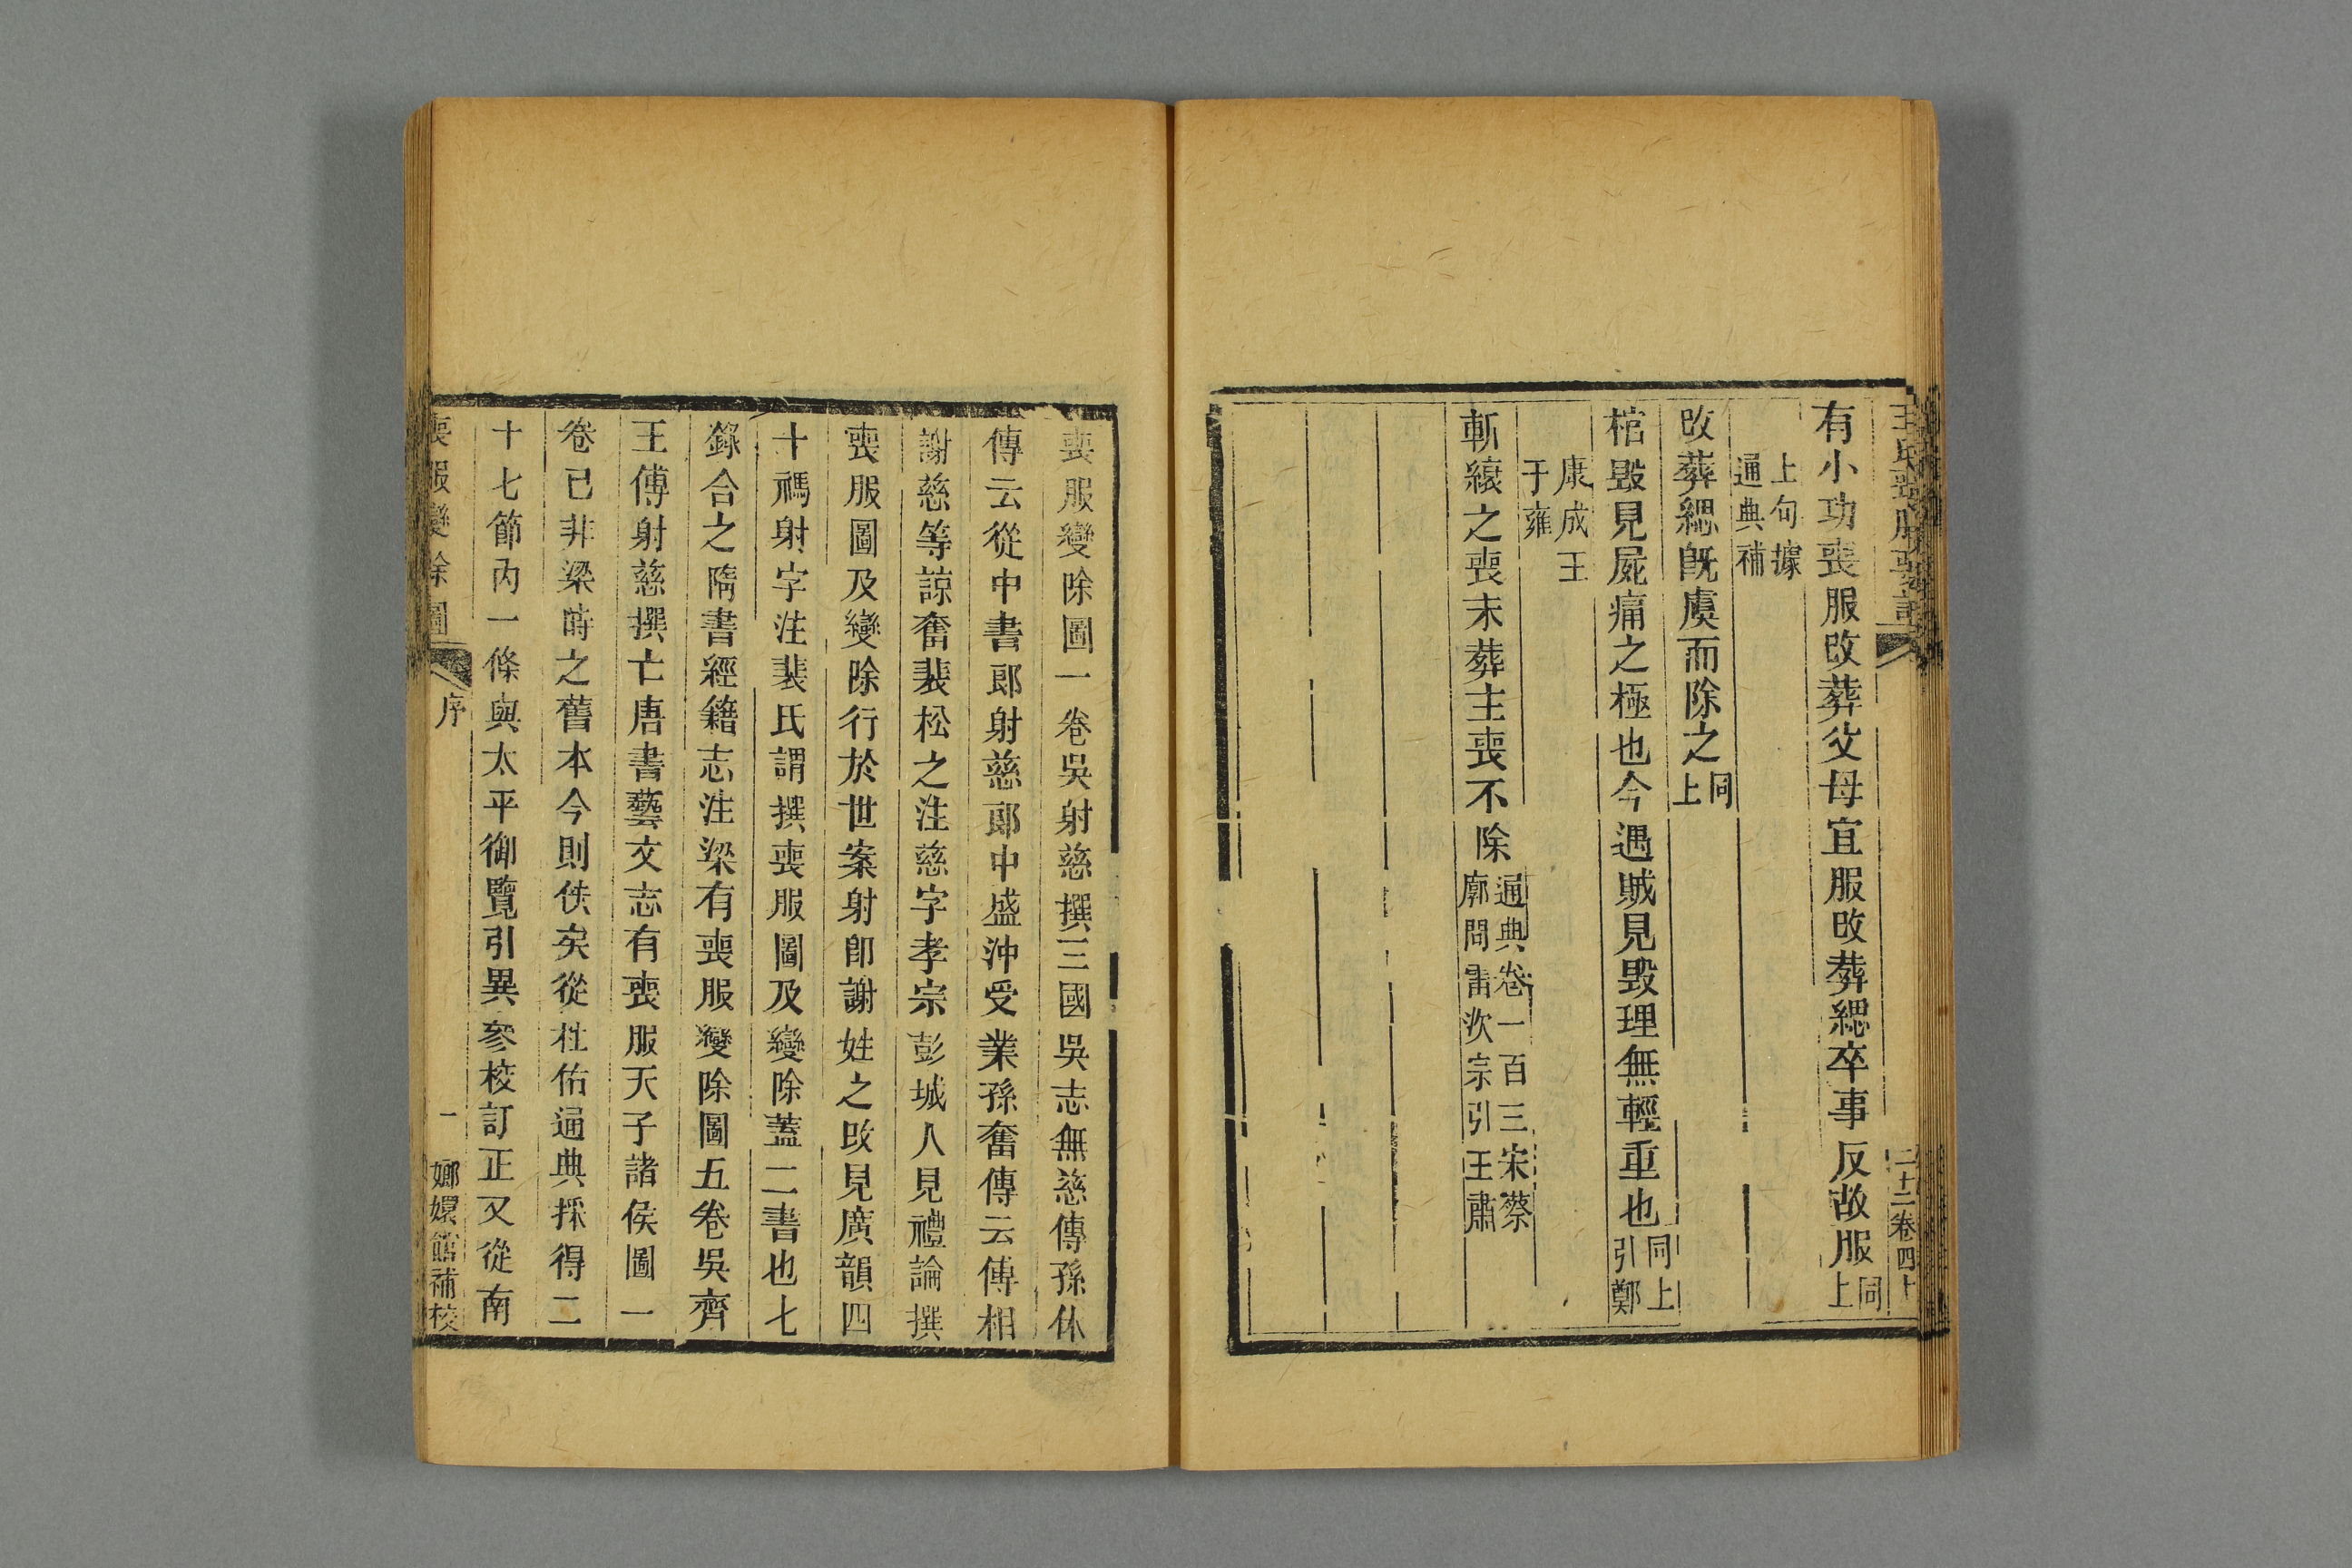 王氏喪服要記
二十二卷四十
有小功喪服改葬父母宜服改葬緦卒事反故服同上
上句據通典補
改葬緦既虞而除之同上
棺毀見屍痛之極也今遇賊見毀理無輕重也同上引鄭
康成王于雍
斬縗之喪未葬主喪不除通典卷一百三宋蔡廓問雷次宗引王肅
喪服變除圖一卷吳射慈撰三國吳志無慈傳孫休
傳云從中書郎射慈郎中盛沖受業孫奮傳云傅相
謝慈等諒奮裴松之注慈字孝宗彭城人見禮論撰
喪服圖及變除行於世案射卽謝姓之改見廣韻四
十禡射字注裴氏謂撰喪服圖及變除蓋二書也七
錄合之隋書經籍志注梁有喪服變除圖五卷吳齊
王傅射慈撰亡唐書藝文志有喪服天子諸侯圖一
卷已非梁時之舊本今則佚矣從杜佑通典採得二
十七節內一條與太平御覽引異參校訂正又從南
喪服變除圖
序
一
嫏嬛館補校